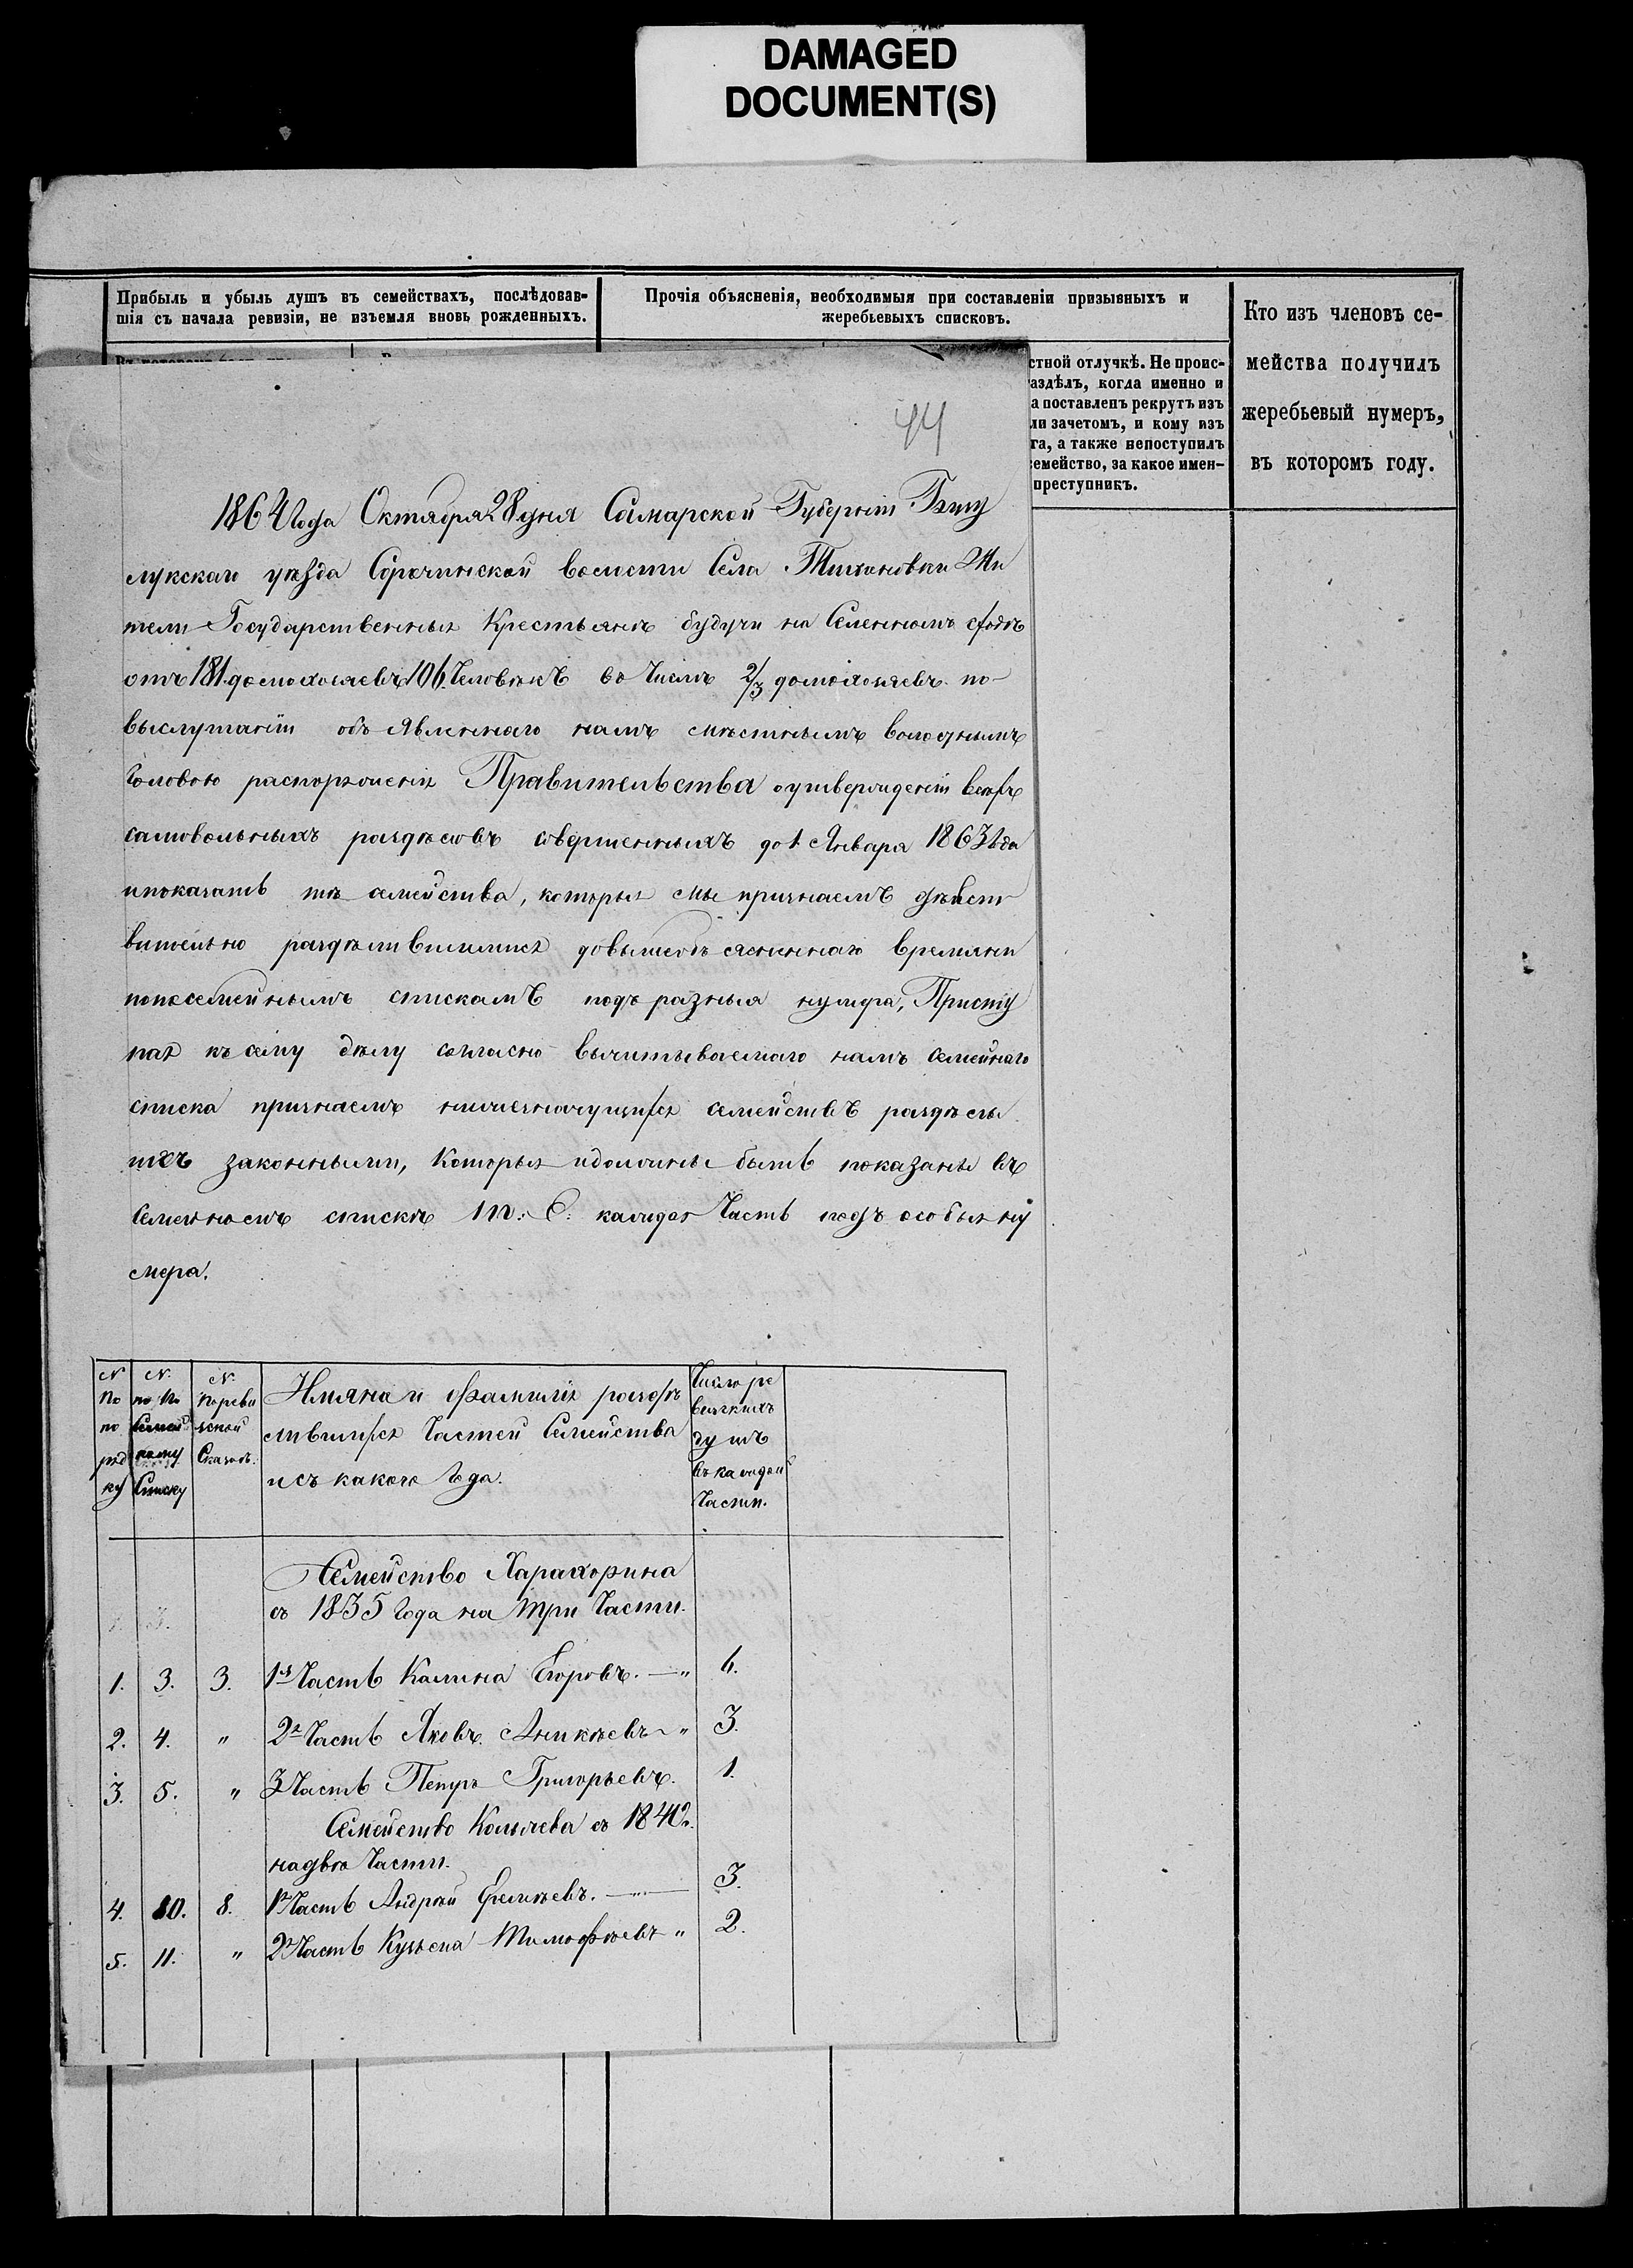 DAMAGED
DOCUMENT(S)
Прибыль и убыль душъ въ семействахъ, послѣдовав-
шія съ начала ревизіи, не изъемля вновь рожденныхъ.
Прочія объясненія, необходимыя при составленіи призывныхъ и
жеребьевыхъ списковъ.
Кто изъ членовъ се-
мейства получилъ
жеребьевый нумеръ,
въ которомъ году.
стной отлучкѣ. Не проис-
аздѣлъ, когда именно и
а поставленъ рекрутъ изъ
ли зачетомъ, и кому изъ
га, а также непоступилъ
семейство, за какое имен-
преступникъ.
44
1864 Года Октября 28 дня Самарской Губерніи Бузу
лукскаго уѣзда Сорочинской волости Села Тихоновки Жи
тели Государственныя Крестьянъ будучи на Селенномъ сходѣ
отъ 181 домохозяевъ 106 Человѣкъ въ Числѣ 2/3 домохозяевъ по
выслушаніи объявленнаго намъ мѣстнымъ волостнымъ
Головою распоряженія Правительства о утвержденіи всѣхъ
самовольныхъ раздѣловъ совершенныхъ до 1 Января 1863 Года
ипоказать тѣ семейства, которыя мы признаемъ дѣйст
вительно раздѣлившимися довышеобъясненнаго времяни
попосемейнымъ спискамъ подъ разныя нумера, Присту
пая къ сему дѣлу согласно вычитываемаго намъ семейнаго
списка признаемъ нижезначущихся семействъ раздѣлы
ихъ законными, Которыя идолжны быть показаны въ
Семейномъ спискѣ т: е: каждая Часть подъ особыя ну
мера.
N По по ряд ку
N. по по Семей ному Списку
N. поревизской Сказкѣ.
Имяна и Фамиліи раздѣ
лившихся Частей Семейства
и съ какого Года.
Число ре
визскихъ
душъ
въ каждой
Части.
Семейство Харахорина
съ 1835 Года на три Части.
1. 3. 3. 1я Часть Калина Егоровъ. — " 6.
2. 4. " 2я Часть Яковъ Аникѣевъ " 3.
3. 5. " 3 Часть Петръ Григорьевъ. 1.
Семейство Колычева съ 184
надвѣ Части.
4. 10. 8. 1я Часть Андрей Еремѣевъ. — 3.
5. 11. " 2я Часть Кузьма Тимофѣевъ " 2.